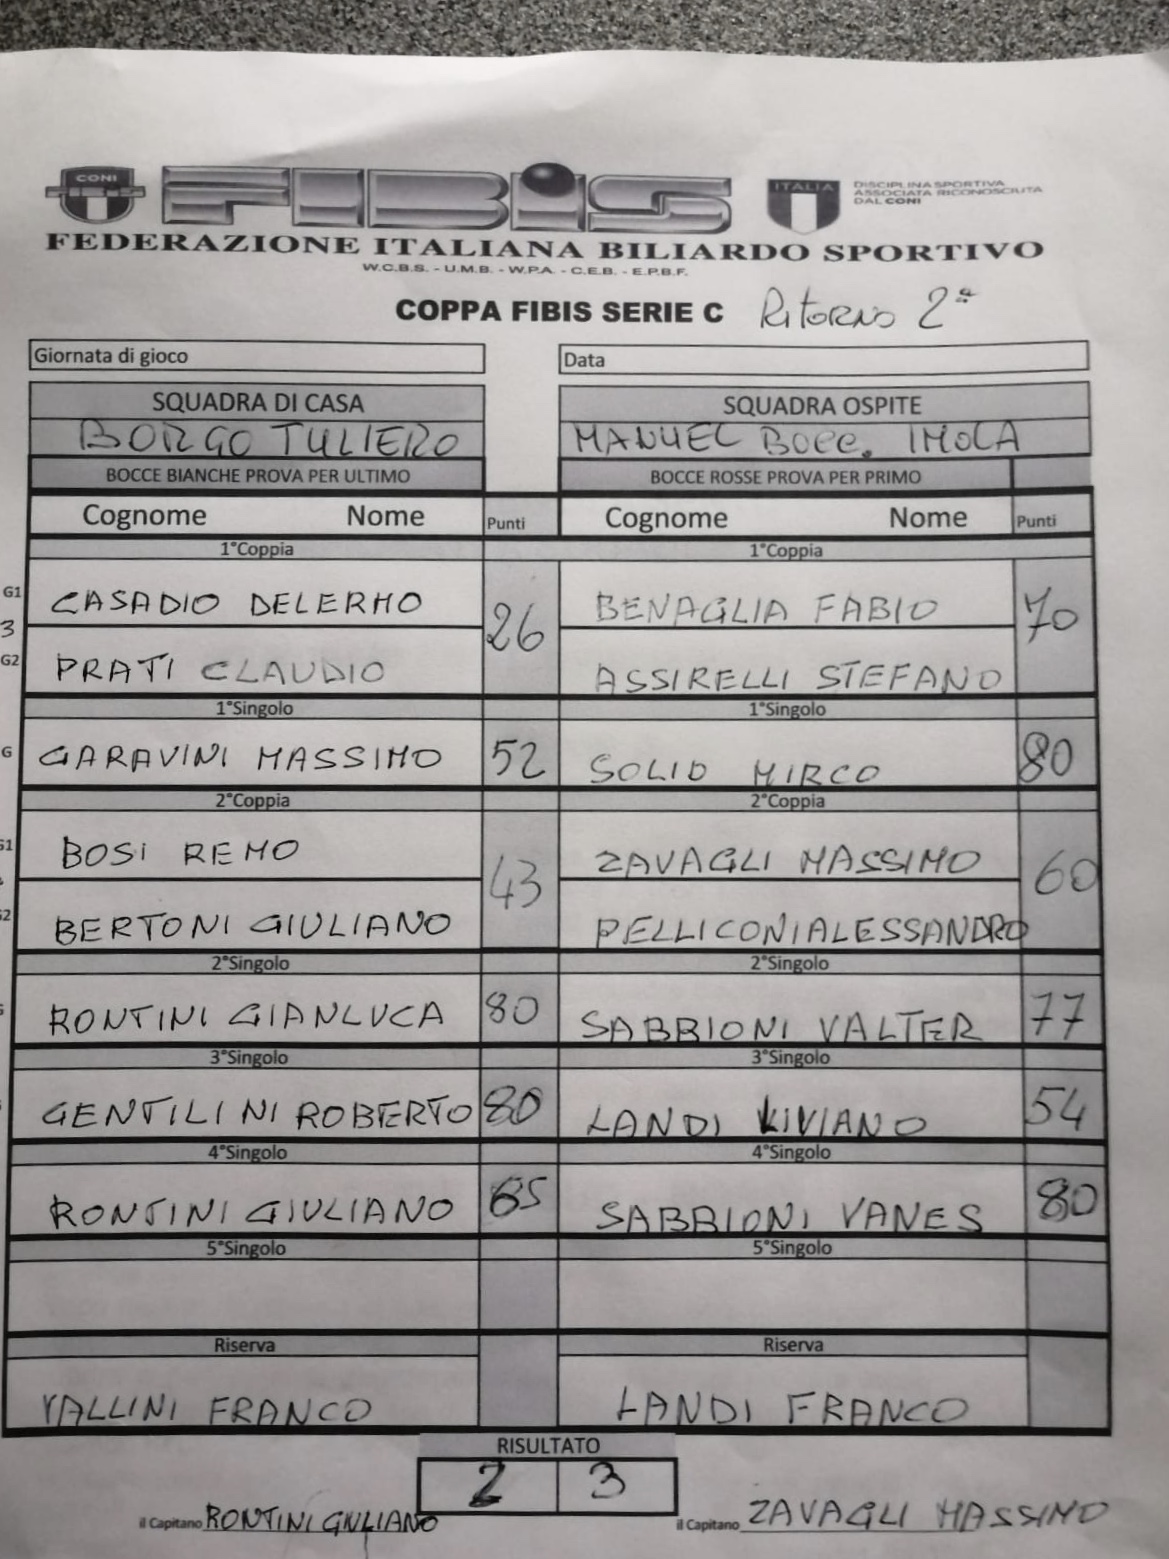 CONI FIBiS ITALIA DISCIPLINA SPORTIVA
ASSOCIATA RICONOSCIUTA
DAL CONI
FEDERAZIONE ITALIANA BILIARDO SPORTIVO
W.C.B.S. - U.M.B. - W.P.A. - C.E.B. - E.P.B.F.
COPPA FIBIS SERIE C Ritorno 2ª
Giornata di gioco Data
SQUADRA DI CASA SQUADRA OSPITE
BORGO TULIERO MANUEL BOCC. IMOLA
BOCCE BIANCHE PROVA PER ULTIMO BOCCE ROSSE PROVA PER PRIMO
Cognome Nome Punti Cognome Nome Punti
1°Coppia 1°Coppia
G1 CASADIO DELERMO 26 BENAGLIA FABIO 70
3
G2 PRATI CLAUDIO ASSIRELLI STEFANO
1°Singolo 1°Singolo
G GARAVINI MASSIMO 52 SOLID MIRCO 80
2°Coppia 2°Coppia
G1 BOSI REMO 43 ZAVAGLI MASSIMO 60
G2 BERTONI GIULIANO PELLICONI ALESSANDRO
2°Singolo 2°Singolo
RONTINI GIANLUCA 80 SABBIONI VALTER 77
3°Singolo 3°Singolo
GENTILINI ROBERTO 80 LANDI VIVIANO 54
4°Singolo 4°Singolo
RONTINI GIULIANO 65 SABBIONI VANES 80
5°Singolo 5°Singolo
Riserva Riserva
VALLINI FRANCO LANDI FRANCO
RISULTATO
2 3
il Capitano RONTINI GIULIANO il Capitano ZAVAGLI MASSIMO